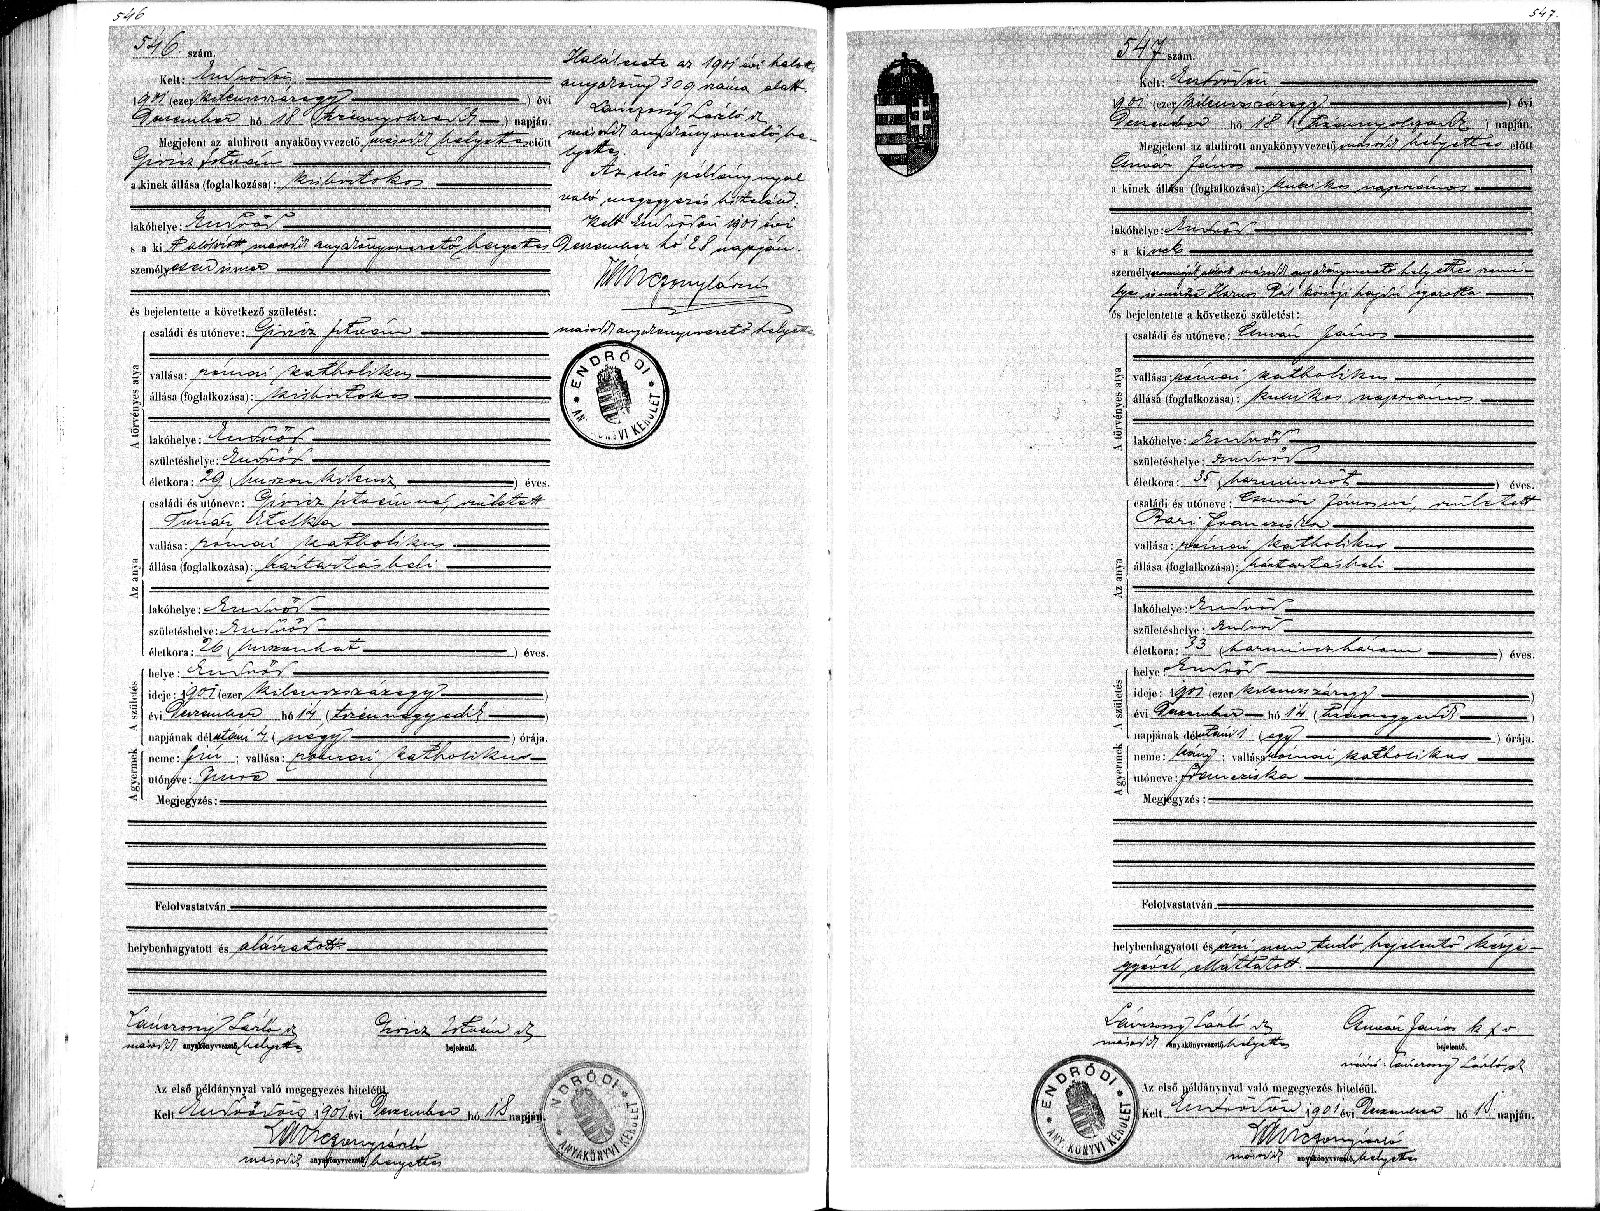 546
546. szám.
Kelt: Endrődön
1901 (ezer kilenczszázegy) évi
Deczember hó 18 (tizennyolczadik) napján.
Megjelent az alulirott anyakönyvvezető második helyettes előtt
Giricz István
a kinek állása (foglalkozása): kisbirtokos
lakóhelye: Endrőd
s a kit alólirott második anyakönyvvezető helyettes
személyesen ismer
és bejelentette a következő születést:
A törvényes atya
családi és utóneve: Giricz István
vallása: római katholikus
állása (foglalkozása): kisbirtokos
lakóhelye: Endrőd
születéshelye: Endrőd
életkora: 29 (huszonkilencz) éves.
Az anya
családi és utóneve: Giricz Istvánné, született
Timár Etelka
vallása: római katholikus
állása (foglalkozása): háztartásbeli
lakóhelye: Endrőd
születéshelye: Endrőd
életkora: 26 (huszonhat) éves.
A születés
helye: Endrőd
ideje: 1901 (ezer kilenczszázegy)
évi Deczember hó 14 (tizennegyedik)
napjának délutáni 4 (négy) órája.
A gyermek
neme: fiú; vallása: római katholikus
utóneve: Imre
Megjegyzés:
Felolvastatván
helybenhagyatott és aláiratott
Lánczonyi László sk
második anyakönyvvezető helyettes
Giricz István sk
bejelentő.
Az első példánynyal való megegyezés hiteléül.
Kelt Endrődön 1901 évi Deczember hó 18 napján.
második anyakönyvvezető helyettes
ENDRŐDI
ANYAKÖNYVI KERÜLET
Halálesete az 1901 évi halott
anyakönyv 309 száma alatt.
Lánczonyi László sk
második anyakönyvvezető he-
lyettes
Az első példánynyal
való megegyezés hiteléül.
Kelt Endrődön 1901 évi
Deczember hó 28 napján.
második anyakönyvvezető helyettes
ENDRŐDI
KERÜLET
547.
547 szám.
Kelt: Endrődön
1901 (ezer kilenczszázegy) évi
Deczember hó 18 (tizennyolczadik) napján.
Megjelent az alulirott anyakönyvvezető második helyettes előtt
János
a kinek állása (foglalkozása): kubikos napszámos
lakóhelye: Endrőd
s a kinek
személy
és bejelentette a következő születést:
A törvényes atya
családi és utóneve: János
vallása: római katholikus
állása (foglalkozása): kubikos napszámos
lakóhelye: Endrőd
születéshelye: Endrőd
életkora: 35 (harminczöt) éves.
Az anya
családi és utóneve: Jánosné, született
Francziska
vallása: római katholikus
állása (foglalkozása): háztartásbeli
lakóhelye: Endrőd
születéshelye: Endrőd
életkora: 33 (harminczhárom) éves.
A születés
helye: Endrőd
ideje: 1901 (ezer kilenczszázegy)
évi Deczember hó 14 (tizennegyedik)
napjának délutáni 1 (egy) órája.
A gyermek
neme: leány; vallása: római katholikus
utóneve: Francziska
Megjegyzés:
Felolvastatván
helybenhagyatott és irni nem tudó bejelentő kézje-
gyével elláttatott.
Lánczonyi László sk
második anyakönyvvezető helyettes
János k x v
bejelentő.
Lánczonyi László sk
Az első példánynyal való megegyezés hiteléül.
Kelt Endrődön 1901 évi Deczember hó 18 napján.
második anyakönyvvezető helyettes
ENDRŐDI
ANYAKÖNYVI KERÜLET